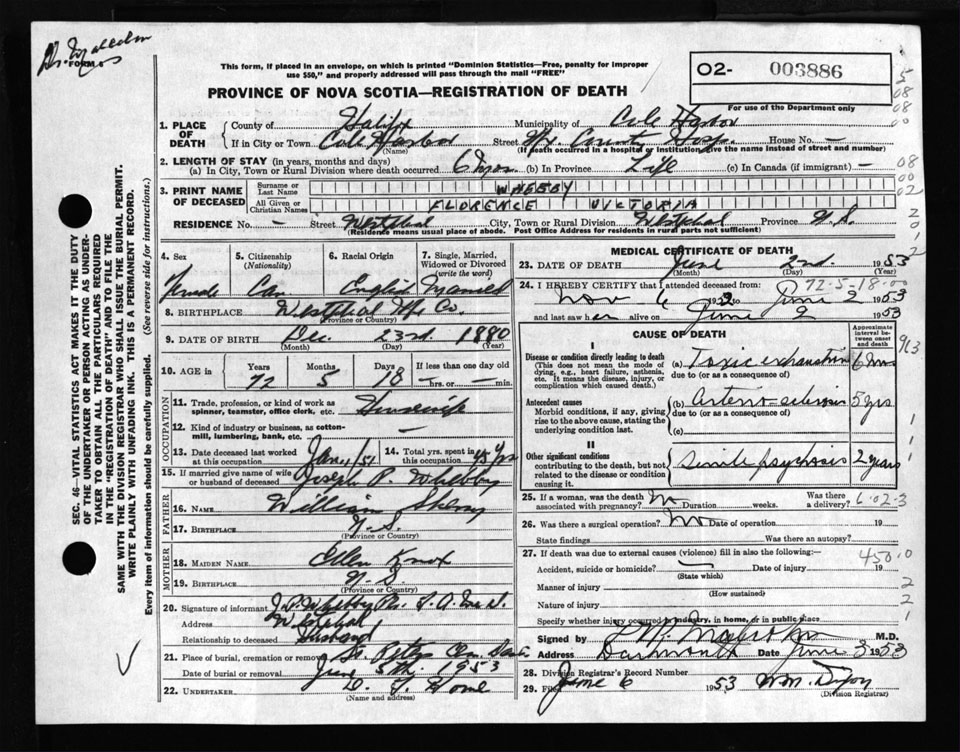 Dr. Malcolm
FORM 6
This form, if placed in an envelope, on which is printed "Dominion Statistics—Free, penalty for improper
use $50," and properly addressed will pass through the mail "FREE"
02- 003886
PROVINCE OF NOVA SCOTIA—REGISTRATION OF DEATH
For use of the Department only
1. PLACE OF DEATH
County of Halifax Municipality of Cole Harbor
If in City or Town Cole Harbor Street Hfx County Hosp. House No. —
(Name) (If death occurred in a hospital or institution, give the name instead of street and number)
2. LENGTH OF STAY (in years, months and days)
(a) In City, Town or Rural Division where death occurred 6 mos (b) In Province Life (c) In Canada (if immigrant) —
3. PRINT NAME OF DECEASED
Surname or Last Name WHEBBY
All Given or Christian Names FLORENCE VICTORIA
RESIDENCE No. — Street Westphal City, Town or Rural Division Westphal Province N.S.
(Residence means usual place of abode. Post Office Address for residents in rural parts not sufficient)
4. Sex Female
5. Citizenship (Nationality) Can
6. Racial Origin English
7. Single, Married, Widowed or Divorced (write the word) Married
8. BIRTHPLACE Westphal Hfx Co.
(Province or Country)
9. DATE OF BIRTH Dec. 23rd. 1880
(Month) (Day) (Year)
10. AGE in Years 72 Months 5 Days 18 If less than one day old — hrs. or — min.
OCCUPATION
11. Trade, profession, or kind of work as
spinner, teamster, office clerk, etc. Housewife
12. Kind of industry or business, as cotton-
mill, lumbering, bank, etc. —
13. Date deceased last worked at this occupation Jan 1/51
14. Total yrs. spent in this occupation 45 yrs
15. If married give name of wife
or husband of deceased Joseph P. Whebby
FATHER
16. NAME William
17. BIRTHPLACE N.S.
(Province or Country)
MOTHER
18. MAIDEN NAME Ellen Knox
19. BIRTHPLACE N.S.
(Province or Country)
20. Signature of informant J.P. Whebby
Address Westphal
Relationship to deceased Husband
21. Place of burial, cremation or removal St. Peters Cem.
Date of burial or removal June 5th, 1953
22. UNDERTAKER
MEDICAL CERTIFICATE OF DEATH
23. DATE OF DEATH June 2nd. 1953
(Month) (Day) (Year)
24. I HEREBY CERTIFY that I attended deceased from:
72-5-18-00
Nov 6 1952 June 2 1953
and last saw her alive on June 2 1953
CAUSE OF DEATH
Approximate interval between onset and death
I
Disease or condition directly leading to death
(This does not mean the mode of
dying, e.g., heart failure, asthenia,
etc. It means the disease, injury, or
complication which caused death.)
(a) Toxic exhaustion 6 mos
due to (or as a consequence of)
Antecedent causes
Morbid conditions, if any, giving
rise to the above cause, stating the
underlying condition last.
(b) Arterio-sclerosis 5 yrs
due to (or as a consequence of)
(c)
II
Other significant conditions
contributing to the death, but not
related to the disease or condition
causing it.
Senile psychosis 2 years
25. If a woman, was the death associated with pregnancy? No Duration weeks. Was there a delivery? 6-02-3
26. Was there a surgical operation? No Date of operation 19
State findings Was there an autopsy?
27. If death was due to external causes (violence) fill in also the following:— 450-0
Accident, suicide or homicide? Date of injury 19
(State which)
Manner of injury
(How sustained)
Nature of injury
Specify whether injury occurred in industry, in home, or in public place
Signed by M.D.
Address Dartmouth Date June 3 1953
28. Division Registrar's Record Number
29. Filed June 6 1953 Wm.
(Division Registrar)
SEC. 46—VITAL STATISTICS ACT MAKES IT THE DUTY
OF THE UNDERTAKER OR PERSON ACTING AS UNDER-
TAKER TO OBTAIN ALL THE PARTICULARS REQUIRED
IN THE "REGISTRATION OF DEATH" AND TO FILE THE
SAME WITH THE DIVISION REGISTRAR WHO SHALL ISSUE THE BURIAL PERMIT.
WRITE PLAINLY WITH UNFADING INK. THIS IS A PERMANENT RECORD.
Every item of information should be carefully supplied. (See reverse side for instructions.)